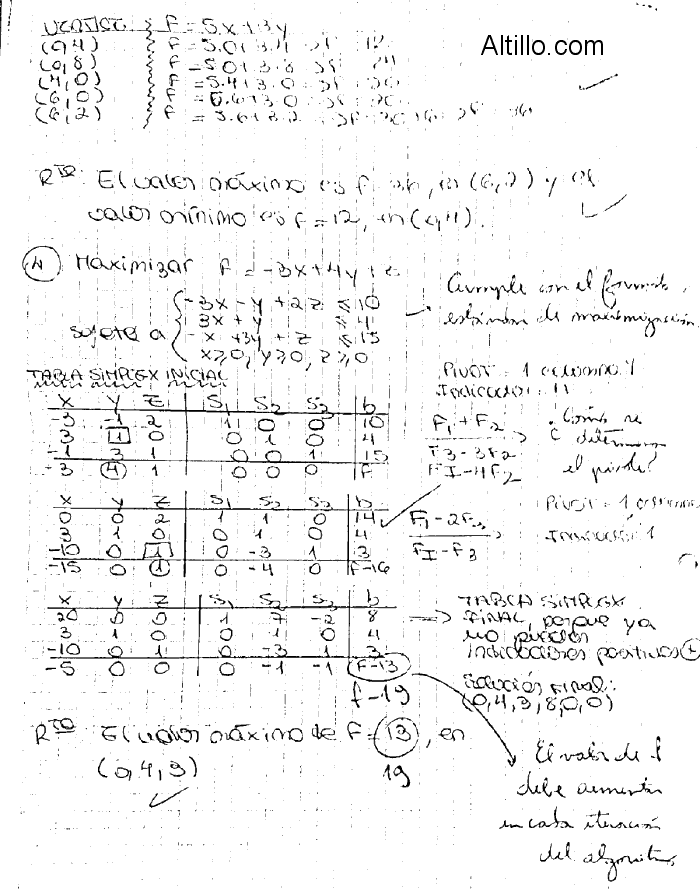 VERTICE f = 5x+3y
Altillo.com
(0,4) f = 5.0+3.4 12
(0,8) f = 5.0+3.8 24
(4,0) f = 5.4+3.0 20
(6,0) f = 5.6+3.0 30
(6,2) f = 5.6+3.2 36
Rta El valor máximo es f 36, en (6,2) y el
valor mínimo es f = 12, en (0,4).
4 Maximizar f = -3x+4y+z
sujeta a
-3x - y + 2z ≤ 10
3x + y ≤ 4
-x +3y + z ≤ 15
x≥0, y≥0, z≥0
Cumple con el formato
estándar de maximización.
TABLA SIMPLEX INICIAL
x y z S1 S2 S3 b
-3 -1 2 1 0 0 10
3 1 0 0 1 0 4
-1 3 1 0 0 1 15
-3 4 1 0 0 0 f
Pivot = 1 columna Y
Indicador = 4
F1+F2
F3-3F2
FI-4F2
¿Cómo se
determina
el pivote?
x y z S1 S2 S3 b
0 0 2 1 1 0 14
3 1 0 0 1 0 4
-10 0 1 0 -3 1 3
-15 0 1 0 -4 0 f-16
F1-2F3
FI-F3
Pivot = 1 columna
Indicador 1
x y z S1 S2 S3 b
20 0 0 1 7 -2 8
3 1 0 0 1 0 4
-10 0 1 0 -3 1 3
-5 0 0 0 -1 -1 f-13
f-19
TABLA SIMPLEX
FINAL, porque ya
no quedan
indicadores positivos (+)
Solución final:
(0,4,3,8,0,0)
Rta El valor máximo de f = 13, en
(0,4,3)
19
El valor de f
debe aumentar
en cada iteración
del algoritmo